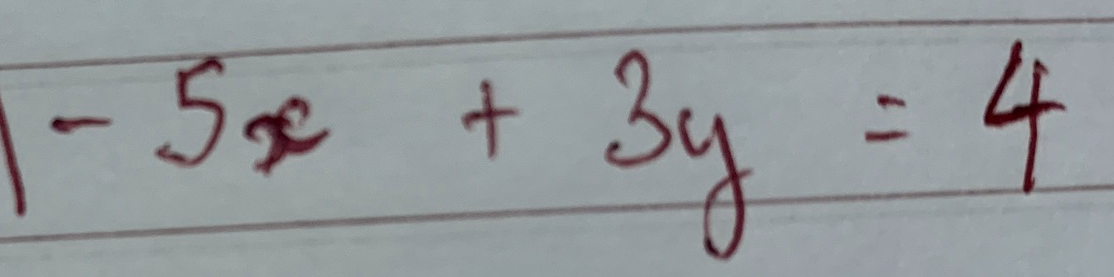 - 5x + 3y = 4